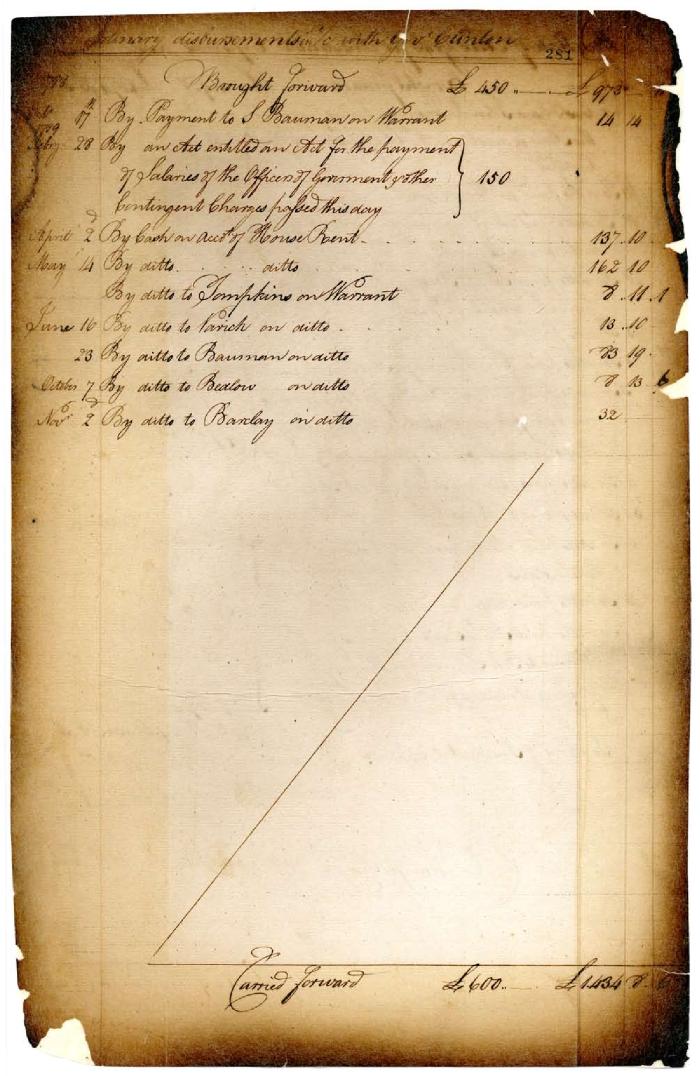 disbursements &c with Govr Clinton
281
Brought forward £ 450 .. £ 973
17 By Payment to S Bauman on Warrant 14 14
28 By an Act entitled an Act for the payment
of Salaries of the Officers of Goverment & other 150
Contingent Charges passed this day
April 2d By Cash on acct of House Rent 137 .. 10
May 14 By ditto ditto 162 10
By ditto to Tompkins on Warrant 8 .. 11 .. 1
June 16 By ditto to Varick on ditto 13 .. 10
23 By ditto to Bauman on ditto 83 19
October 7 By ditto to Bedlow on ditto 8 13 6
Novr 2d By ditto to Barclay on ditto 32
Carried forward £600 .. £1434 8 6